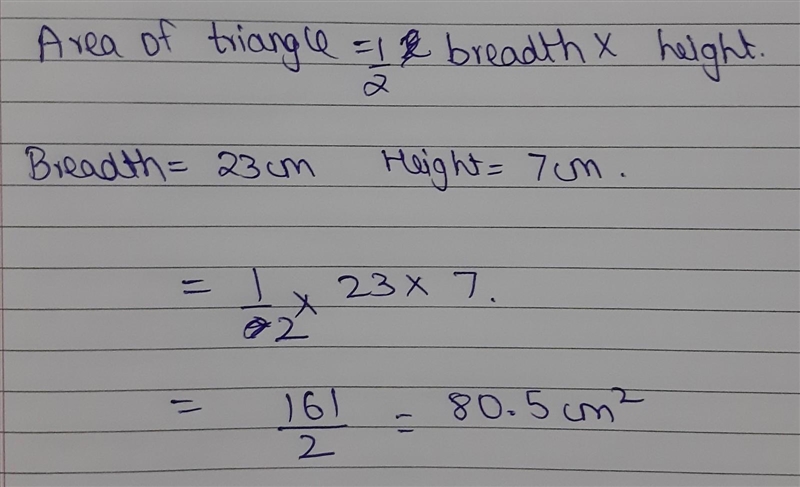 Area of triangle = 1/2 breadth × height.
Breadth = 23cm Height = 7cm.
= 1/2 × 23 × 7.
= 161/2 = 80.5 cm²